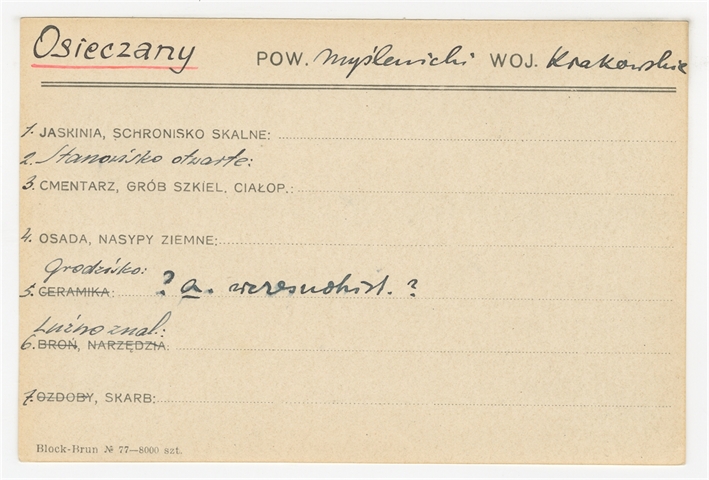 Osieczany POW. myślenicki WOJ. Krakowskie
1. JASKINIA, SCHRONISKO SKALNE:
2. Stanowisko otwarte:
3. CMENTARZ, GRÓB SZKIEL, CIAŁOP.:
4. OSADA, NASYPY ZIEMNE:
Grodzisko:
5. CERAMIKA: ? a. wczesnohist. ?
Luźno znal.:
6. BROŃ, NARZĘDZIA:
7. OZDOBY, SKARB:
Block-Brun № 77—8000 szt.